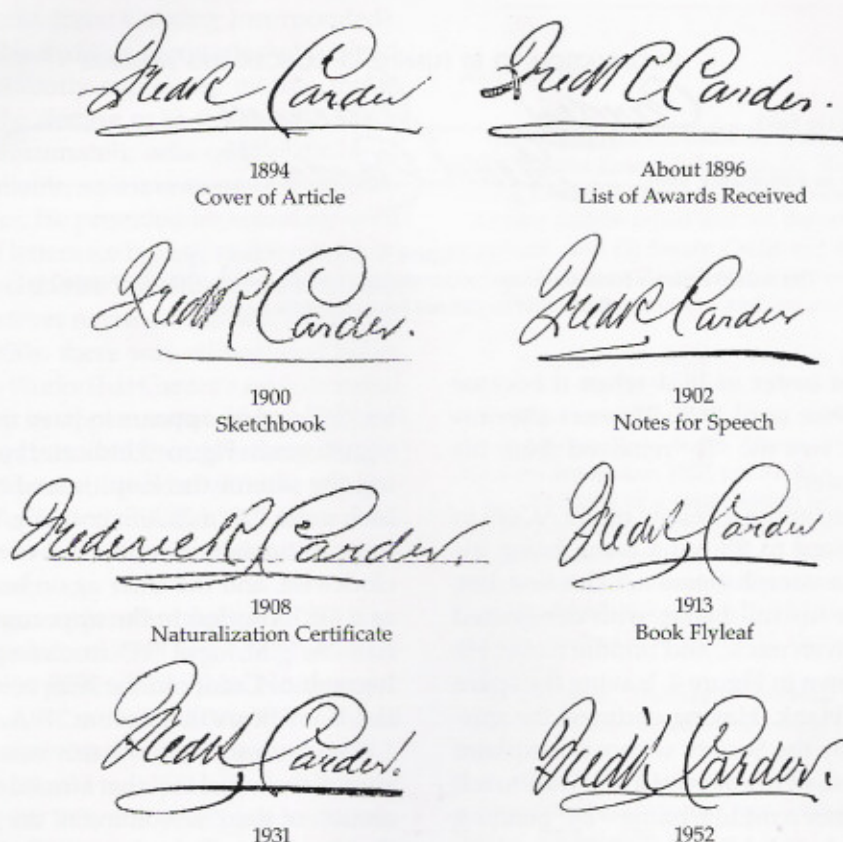 Fredk Carder
1894
Cover of Article
Fredk Carder.
About 1896
List of Awards Received
Fredk Carder.
1900
Sketchbook
Fredk Carder
1902
Notes for Speech
Frederick Carder.
1908
Naturalization Certificate
Fredk Carder
1913
Book Flyleaf
Fredk Carder.
1931
Fredk Carder.
1952